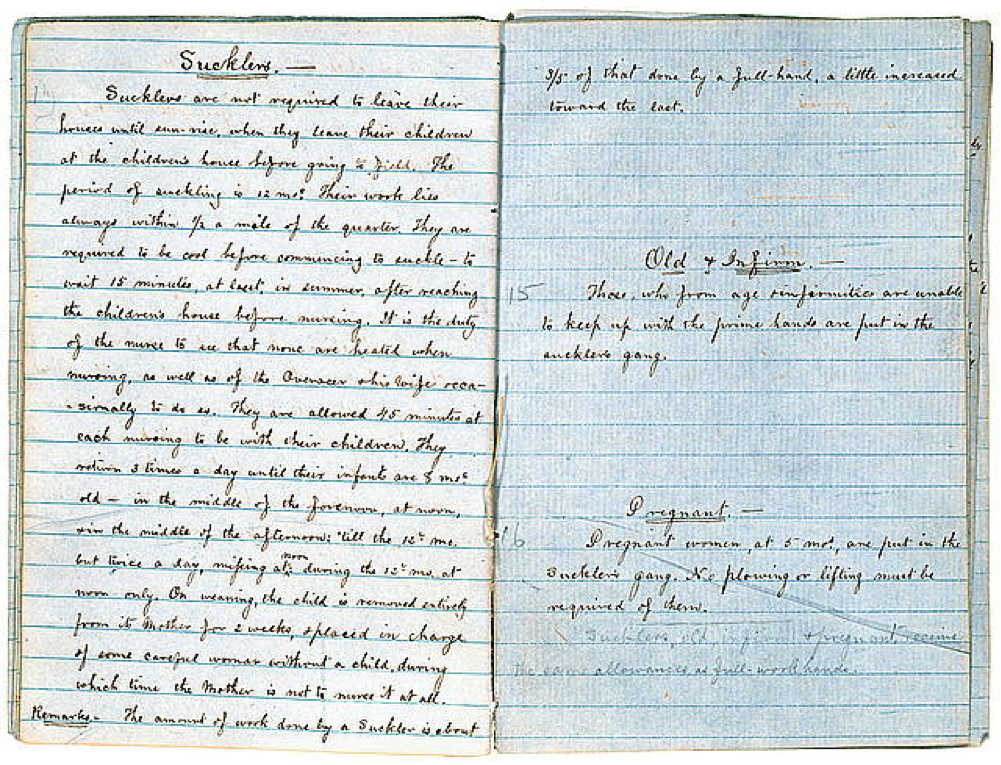 Sucklers. —
Sucklers are not required to leave their
houses until sun-rise, when they leave their children
at the children's house before going to field. The
period of suckling is 12 mos. Their work lies
always within 1/2 a mile of the quarter. They are
required to be cool before commencing to suckle — to
wait 15 minutes, at least, in summer, after reaching
the children's house before nursing. It is the duty
of the nurse to see that none are heated when
nursing, as well as of the Overseer & his wife occa-
-sionally to do so. They are allowed 45 minutes at
each nursing to be with their children. They
return 3 times a day until their infants are 8 mos
old — in the middle of the forenoon, at noon,
& in the middle of the afternoon: 'till the 12th mo.
but twice a day, missing at noon; during the 12th mo. at
noon only. On weaning, the child is removed entirely
from its Mother for 2 weeks, & placed in charge
of some careful woman without a child, during
which time the Mother is not to nurse it at all.
Remarks. — The amount of work done by a Suckler is about
3/5 of that done by a full-hand, a little increased
toward the last.
Old & Infirm. —
15 Those, who from age & infirmities are unable
to keep up with the prime hands are put in the
suckler's gang.
Pregnant. —
16 Pregnant women, at 5 mos., are put in the
Suckler's gang. No plowing or lifting must be
required of them.
Sucklers, old, infirm & pregnant, receive
the same allowances as full-work hands.